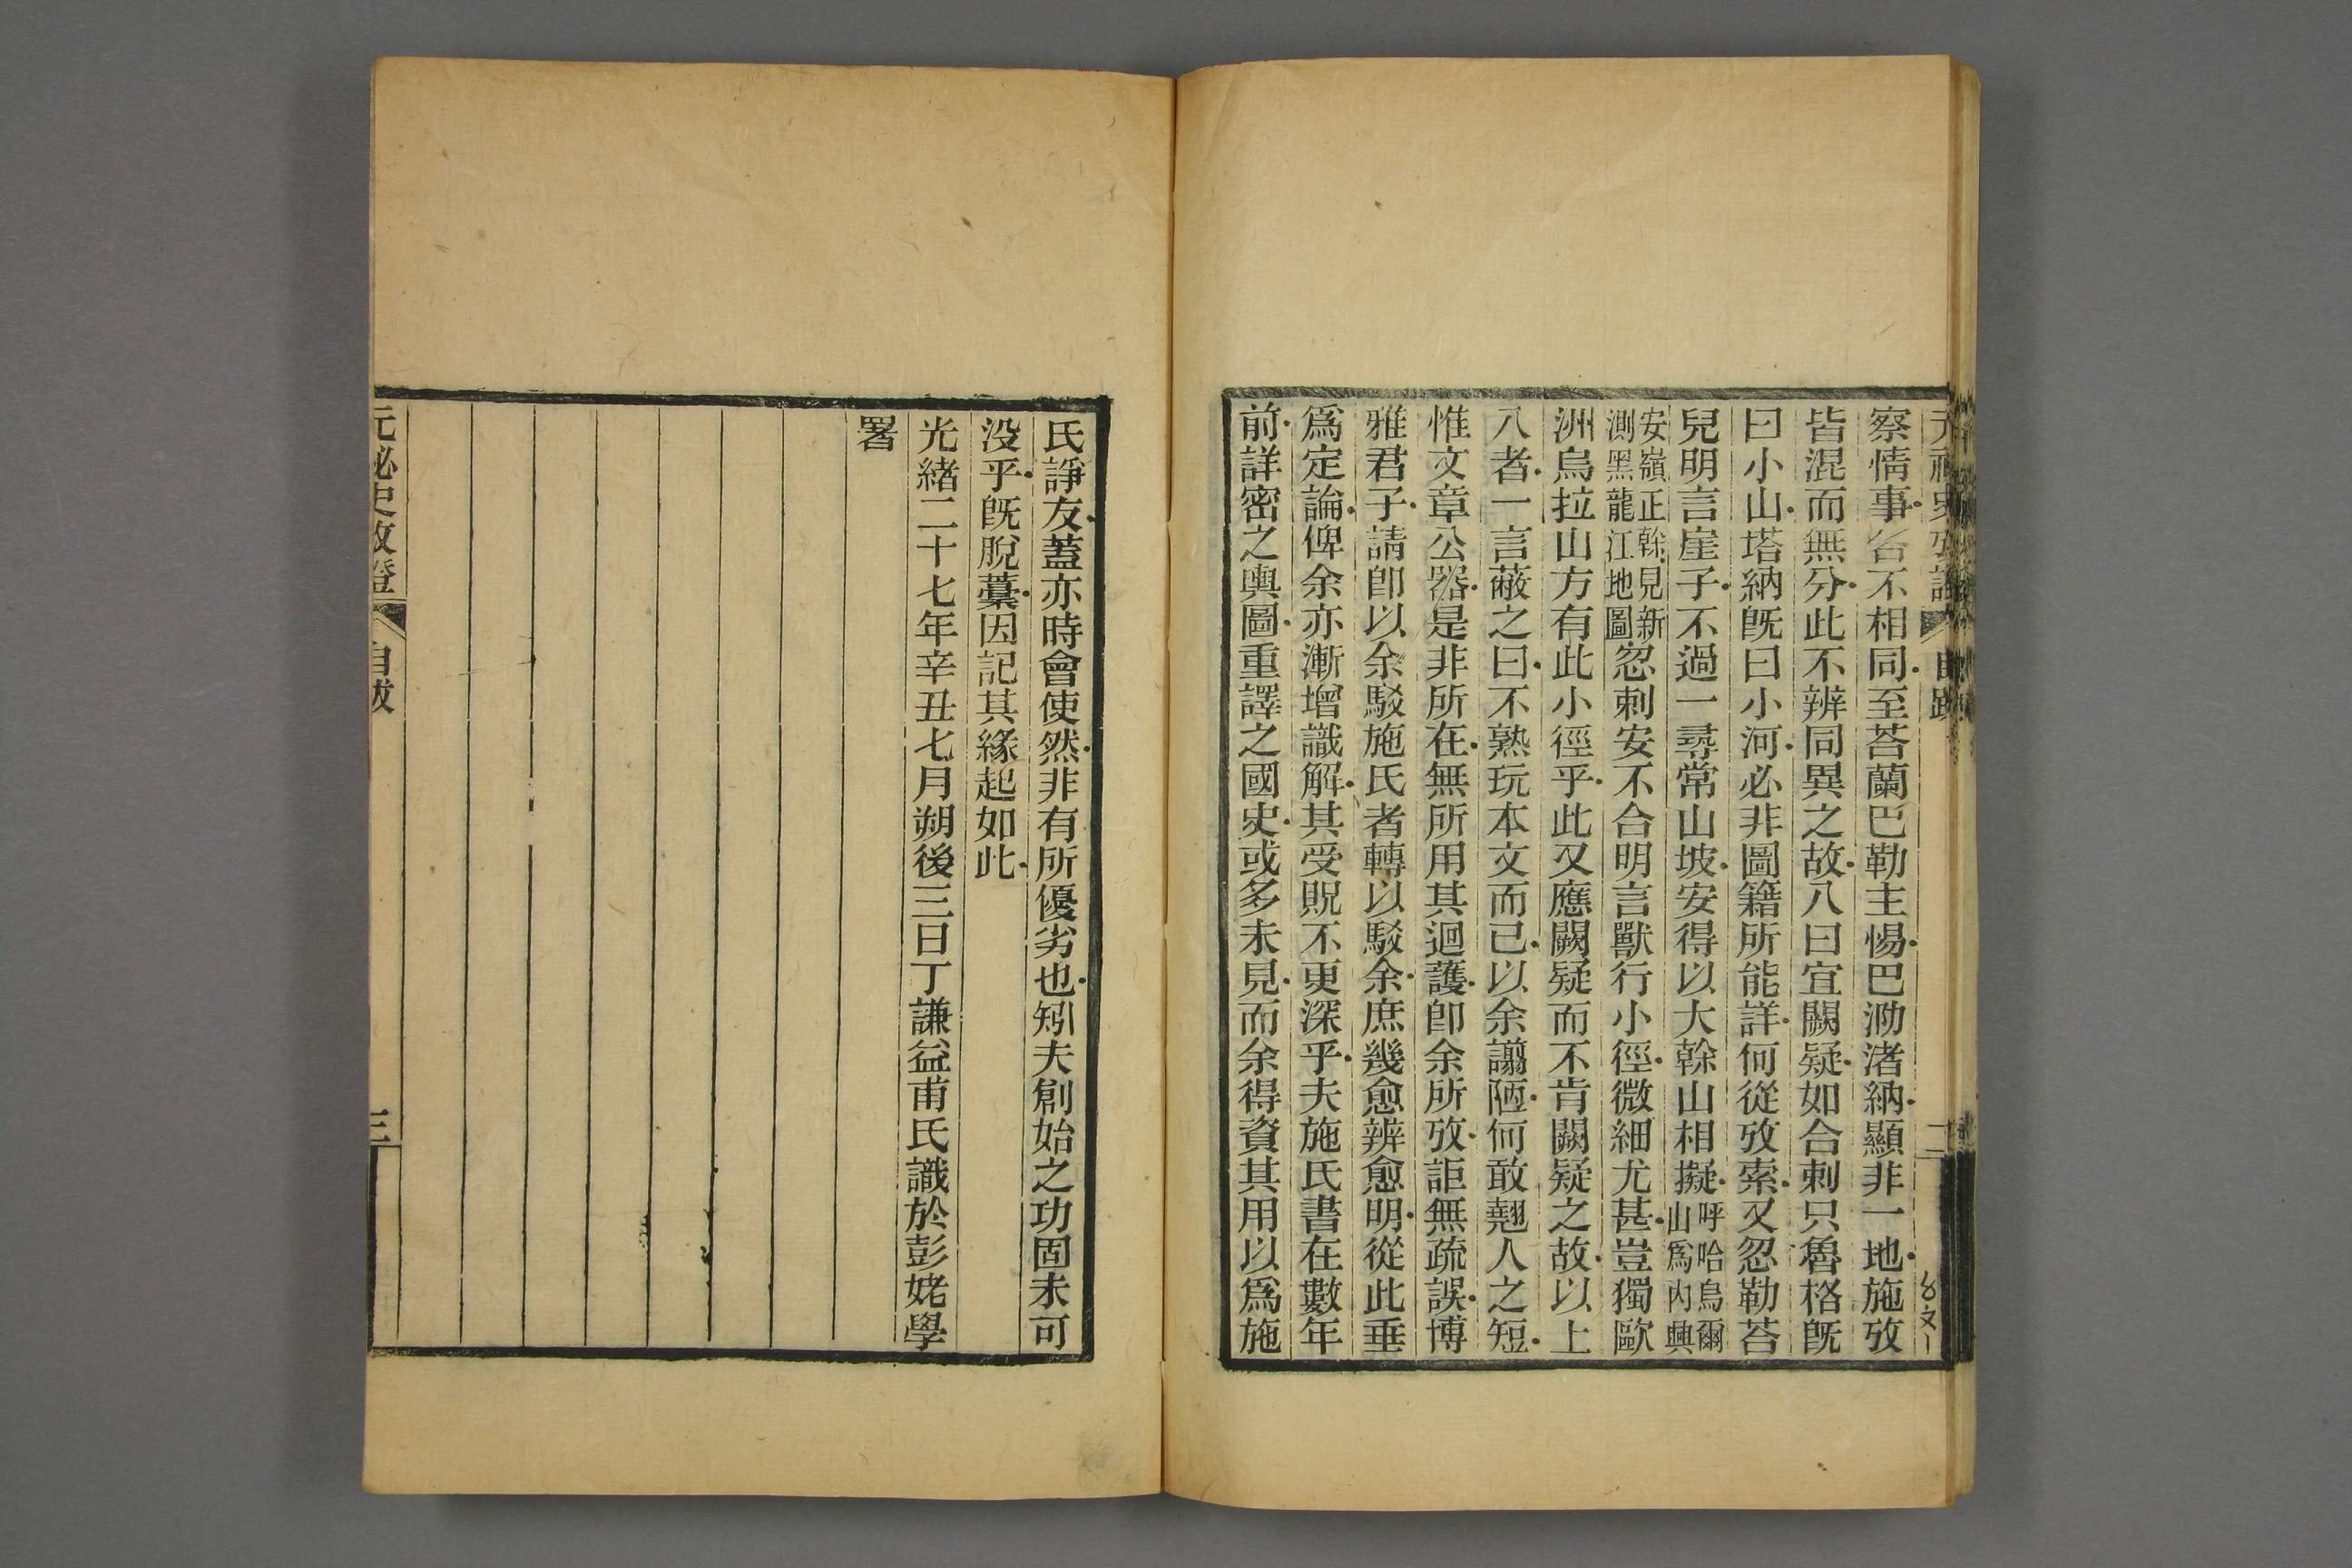 元祕史攷證 自跋 二
察情事各不相同至荅蘭巴勒主惕巴泐渚納顯非一地施攷
皆混而無分此不辨同異之故八曰宜闕疑如合剌只魯格旣
曰小山塔納旣曰小河必非圖籍所能詳何從攷索又忽勒荅
兒明言崖子不過一尋常山坡安得以大榦山相擬呼哈烏爾山爲內興
安嶺正榦見新測黑龍江地圖忽剌安不合明言獸行小徑微細尤甚豈獨歐
洲烏拉山方有此小徑乎此又應闕疑而不肯闕疑之故以上
八者一言蔽之曰不熟玩本文而已以余譾陋何敢翹人之短
惟文章公器是非所在無所用其迴護卽余所攷詎無疏誤博
雅君子請卽以余駁施氏者轉以駁余庶幾愈辨愈明從此垂
爲定論俾余亦漸增識解其受貺不更深乎夫施氏書在數年
前詳密之輿圖重譯之國史或多未見而余得資其用以爲施
氏諍友蓋亦時會使然非有所優劣也矧夫創始之功固未可
没乎旣脫藁因記其緣起如此
光緒二十七年辛丑七月朔後三日丁謙益甫氏識於彭姥學
署
元祕史攷證 自跋 三